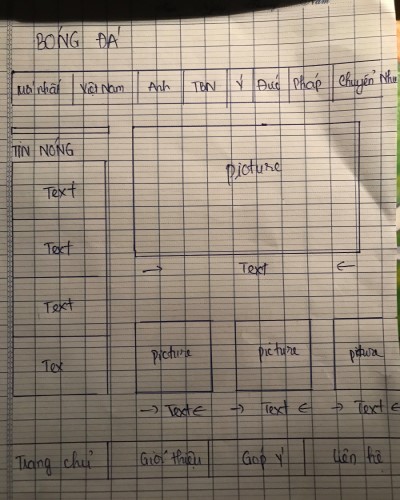 BÓNG ĐÁ
Mới nhất Việt Nam Anh TBN Ý Đức Pháp Chuyển Như
TIN NÓNG
picture
Text
Text
→ Text ←
Text
Tex
picture picture picture
→ Text ← → Text ← → Text ←
Trang chủ Giới thiệu Góp Ý Liên hệ